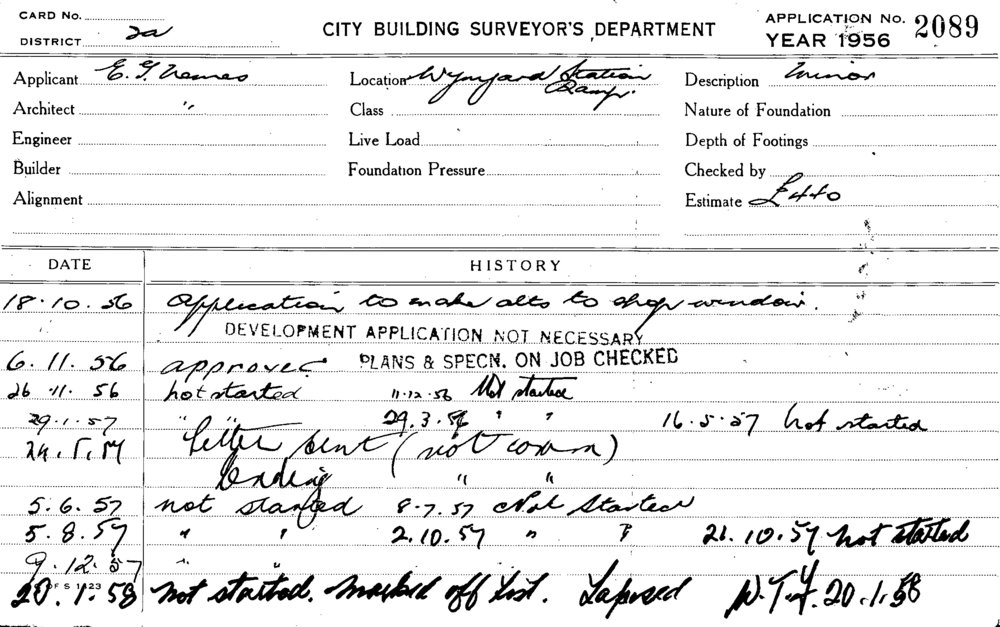 CARD No.
DISTRICT 2a
CITY BUILDING SURVEYOR'S DEPARTMENT
APPLICATION No. 2089
YEAR 1956
Applicant E. G. Location Wynyard Station Ramp. Description Minor
Architect " Class Nature of Foundation
Engineer Live Load Depth of Footings
Builder Foundation Pressure Checked by
Alignment Estimate £440
DATE HISTORY
18.10.56 Application to make alts to shop window.
DEVELOPMENT APPLICATION NOT NECESSARY
6.11.56 approved PLANS & SPECN. ON JOB CHECKED
26.11.56 not started 11.12.56 Not started
29.1.57 " " 29.3.56 " " 16.5.57 not started
24.5.57 letter sent (not comm)
" "
5.6.57 not started 8.7.57 Not Started
5.8.57 " " 2.10.57 " " 21.10.57 not started
9.12.57 "
20.1.58 not started. Marked off list. Lapsed 20.1.58